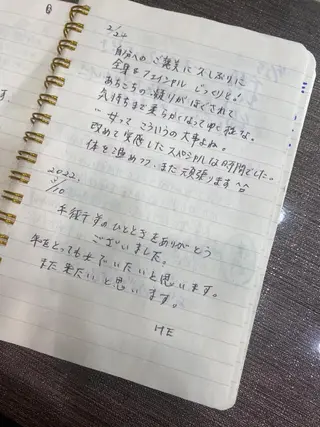 2/24
自分への ご褒美に久しぶりに
全身&フェイシャル じっくりと!
あちこちの 凝りがほぐされて
気持ちまで柔らかくなってゆく様な。
って こういうの大事よね。
改めて実感したスペシャルな時間でした。
体を温めつつ、また頑張ります^^
2022.
3/10
のひとときをありがとう
ございました。
年をとっても でいたいと思います。
また来たいと思います。
M E
す。